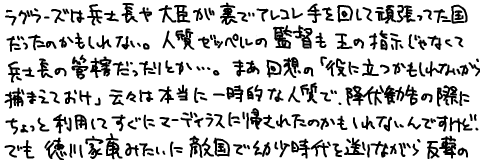 ラグラーズは兵士長や大臣が裏でアレコレ手を回して頑張ってた国
だったのかもしれない。人質ゼッペルの監督も王の指示じゃなくて
兵士長の管轄だったりとか…。まあ回想の「役に立つかもしれないから
捕まえておけ」云々は本当に一時的な人質で、降伏勧告の際に
ちょっと利用してすぐにマーディラスに帰されたのかもしれないんですけど。
でも徳川家康みたいに敵国で幼少時代を送りながら反撃の